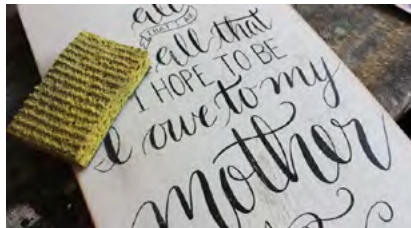 all
THAT I AM
all that
I HOPE TO BE
I owe to my
mother